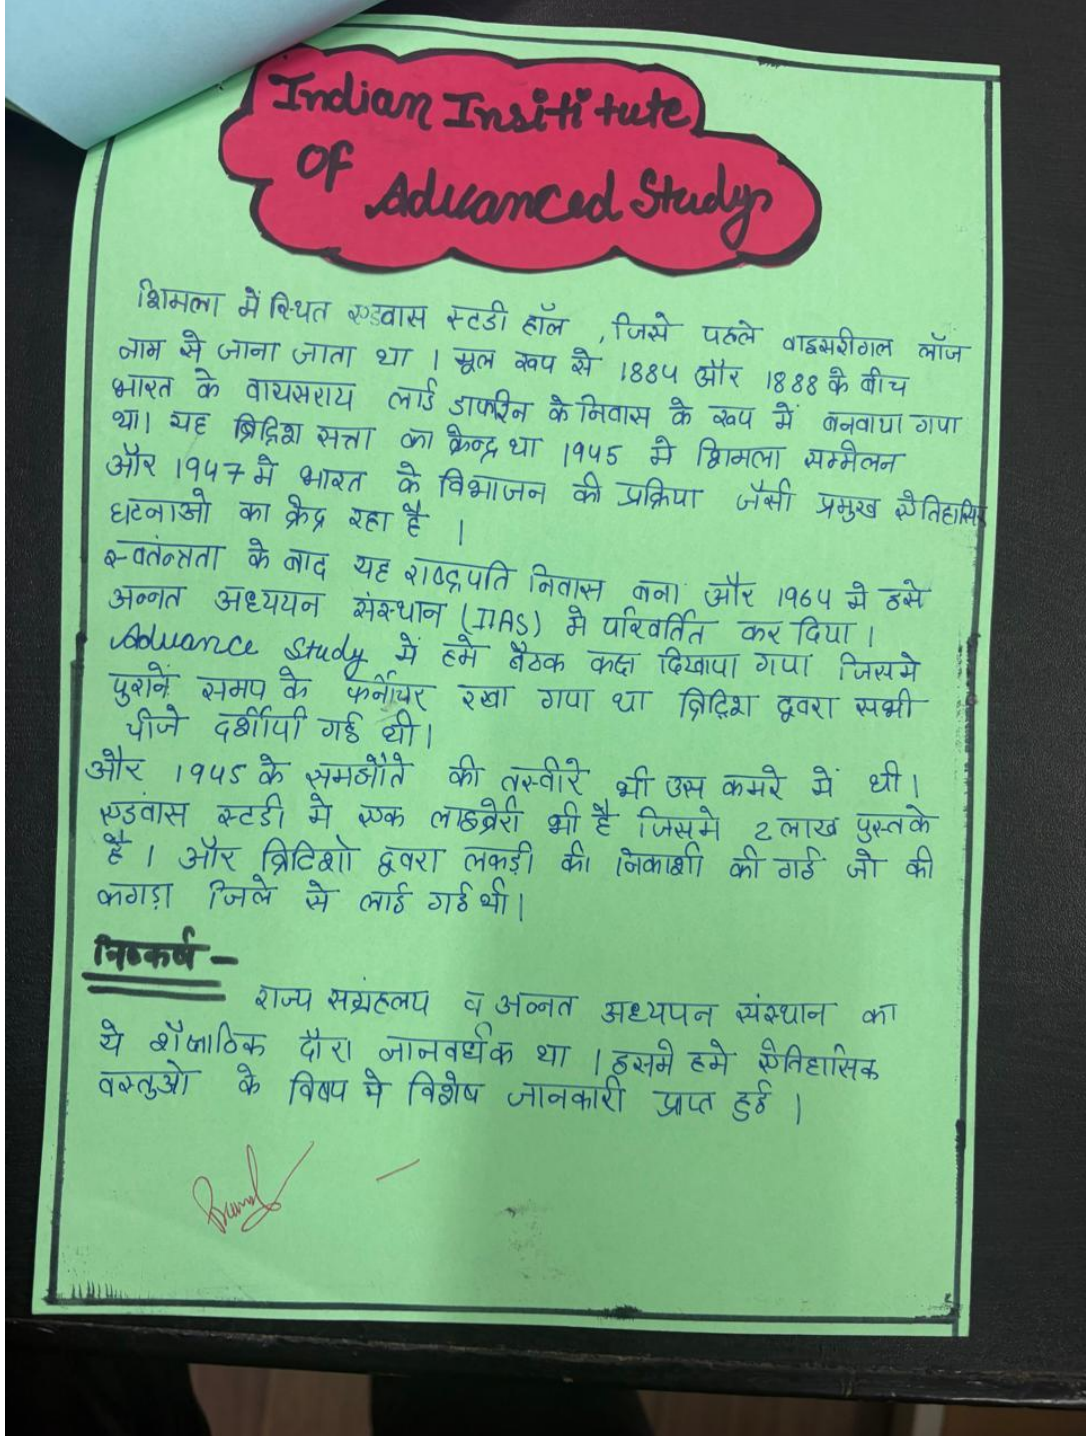 Indian Insititute
Of Advanced Study
शिमला में स्थित एडवास स्टडी हॉल , जिसे पहले वाइसरीगल लॉज
नाम से जाना जाता था । मूल रूप से 1884 और 1888 के बीच
भारत के वायसराय लार्ड डाफरिन के निवास के रूप में बनवाया गया
था। यह ब्रिटिश सत्ता का केन्द्र था 1945 मे शिमला सम्मेलन
और 1947 मे भारत के विभाजन की प्रक्रिया जैसी प्रमुख ऐतिहासिक
घटनाओ का केंद्र रहा है ।
स्वतंन्त्रता के बाद यह राष्ट्रपति निवास बना और 1964 मे इसे
अन्नत अध्ययन संस्थान (IIAS) मे परिवर्तित कर दिया ।
Advance Study में हमे बैठक कक्ष दिखाया गया जिसमे
पुराने समय के फर्नीचर रखा गया था ब्रिटिश द्वरा सभी
चीजे दर्शायी गई थी।
और 1945 के समझौते की तस्वीरे भी उस कमरे में थी।
एडवांस स्टडी मे एक लाइब्रेरी भी है जिसमे 2 लाख पुस्तके
है । और ब्रिटिशो द्वरा लकड़ी की निकाशी की गई जो की
कगड़ा जिले से लाई गई थी।
निष्कर्ष –
राज्य सग्रंहलय व अन्नत अध्ययन संस्थान का
ये शैक्षाणिक दौरा ज्ञानवर्धक था । इसमे हमे ऐतिहासिक
वस्तुओ के विषय मे विशेष जानकारी प्राप्त हुई ।